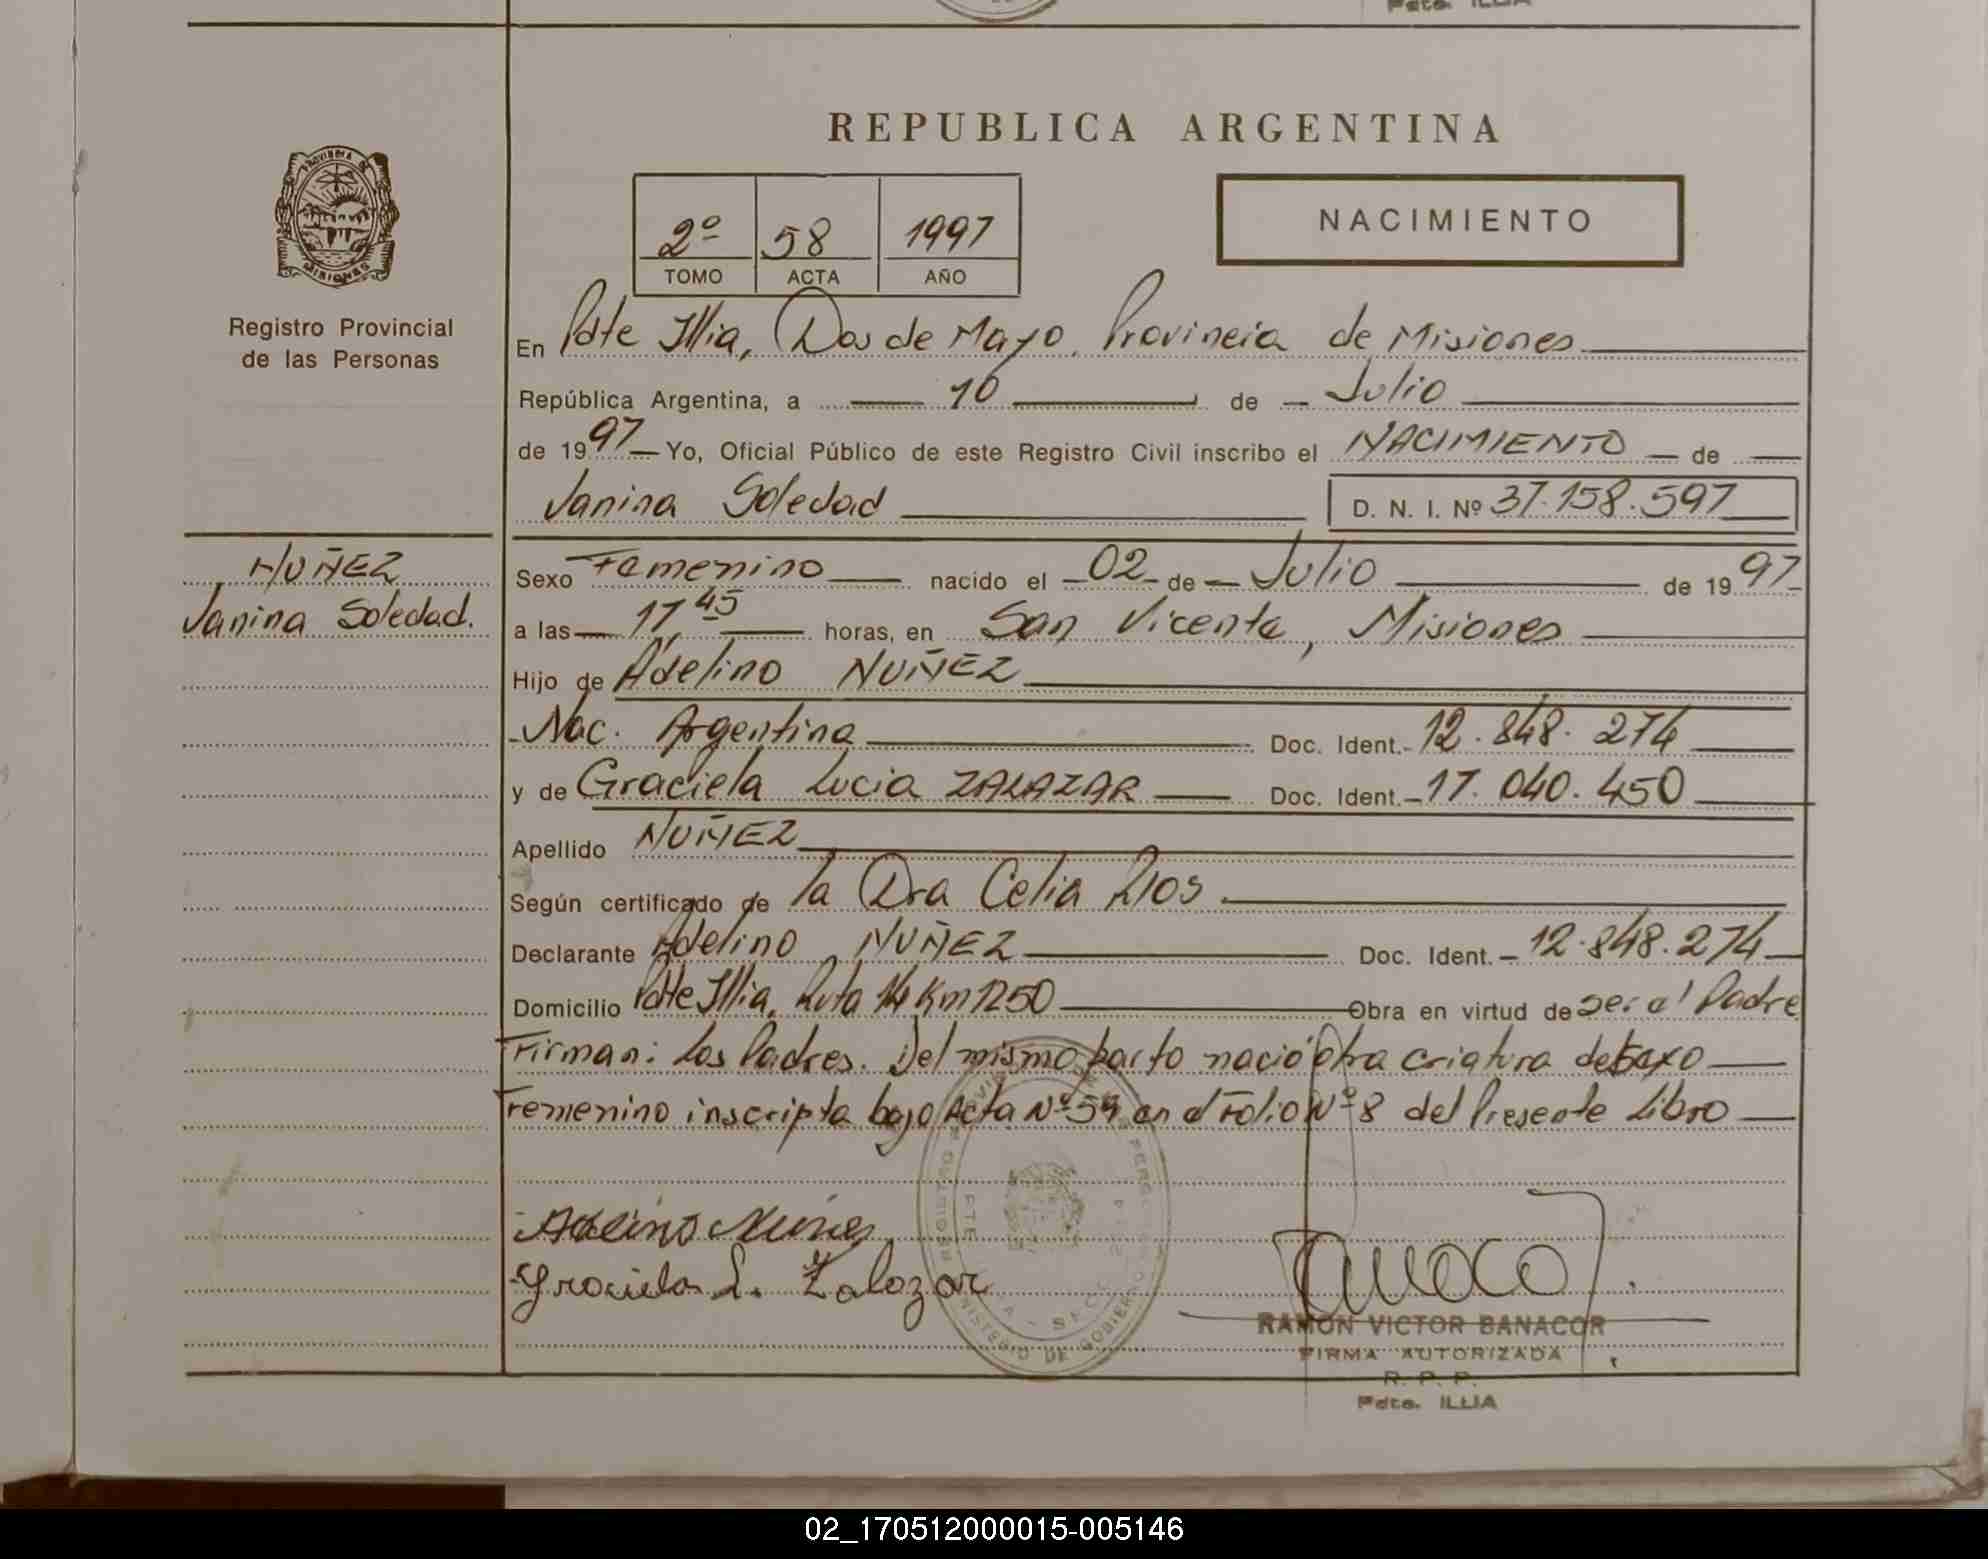 Pdte. ILLIA
REPUBLICA ARGENTINA
PROVINCIA DE
MISIONES
2º 58 1997
TOMO ACTA AÑO
NACIMIENTO
Registro Provincial
de las Personas
En Pdte Illia, Dos de Mayo, Provincia de Misiones
República Argentina, a 10 de Julio
de 1997 Yo, Oficial Público de este Registro Civil inscribo el NACIMIENTO de
Janina Soledad D. N. I. Nº 37.158.597
NUÑEZ
Janina Soledad.
Sexo Femenino nacido el 02 de Julio de 1997
a las 17,45 horas, en San Vicente, Misiones
Hijo de Adelino NUÑEZ
Nac. Argentina Doc. Ident. 12.848.274
y de Graciela Lucia ZALAZAR Doc. Ident. 17.040.450
Apellido NUÑEZ
Según certificado de la Dra Celia Rios
Declarante Adelino NUÑEZ Doc. Ident. 12.848.274
Domicilio Pdte Illia, Ruta 14 Km 1250 Obra en virtud de ser el Padre
Firman: Los Padres. Del mismo parto nació otra criatura de sexo
Femenino inscripta bajo Acta Nº 59 en el Folio Nº 8 del Presente Libro
Adelino Nuñez
Graciela L. Zalazar
MINISTERIO DE GOBIERNO
RAMON VICTOR BANACOR
FIRMA AUTORIZADA
R. P. P.
Pdte. ILLIA
02_170512000015-005146